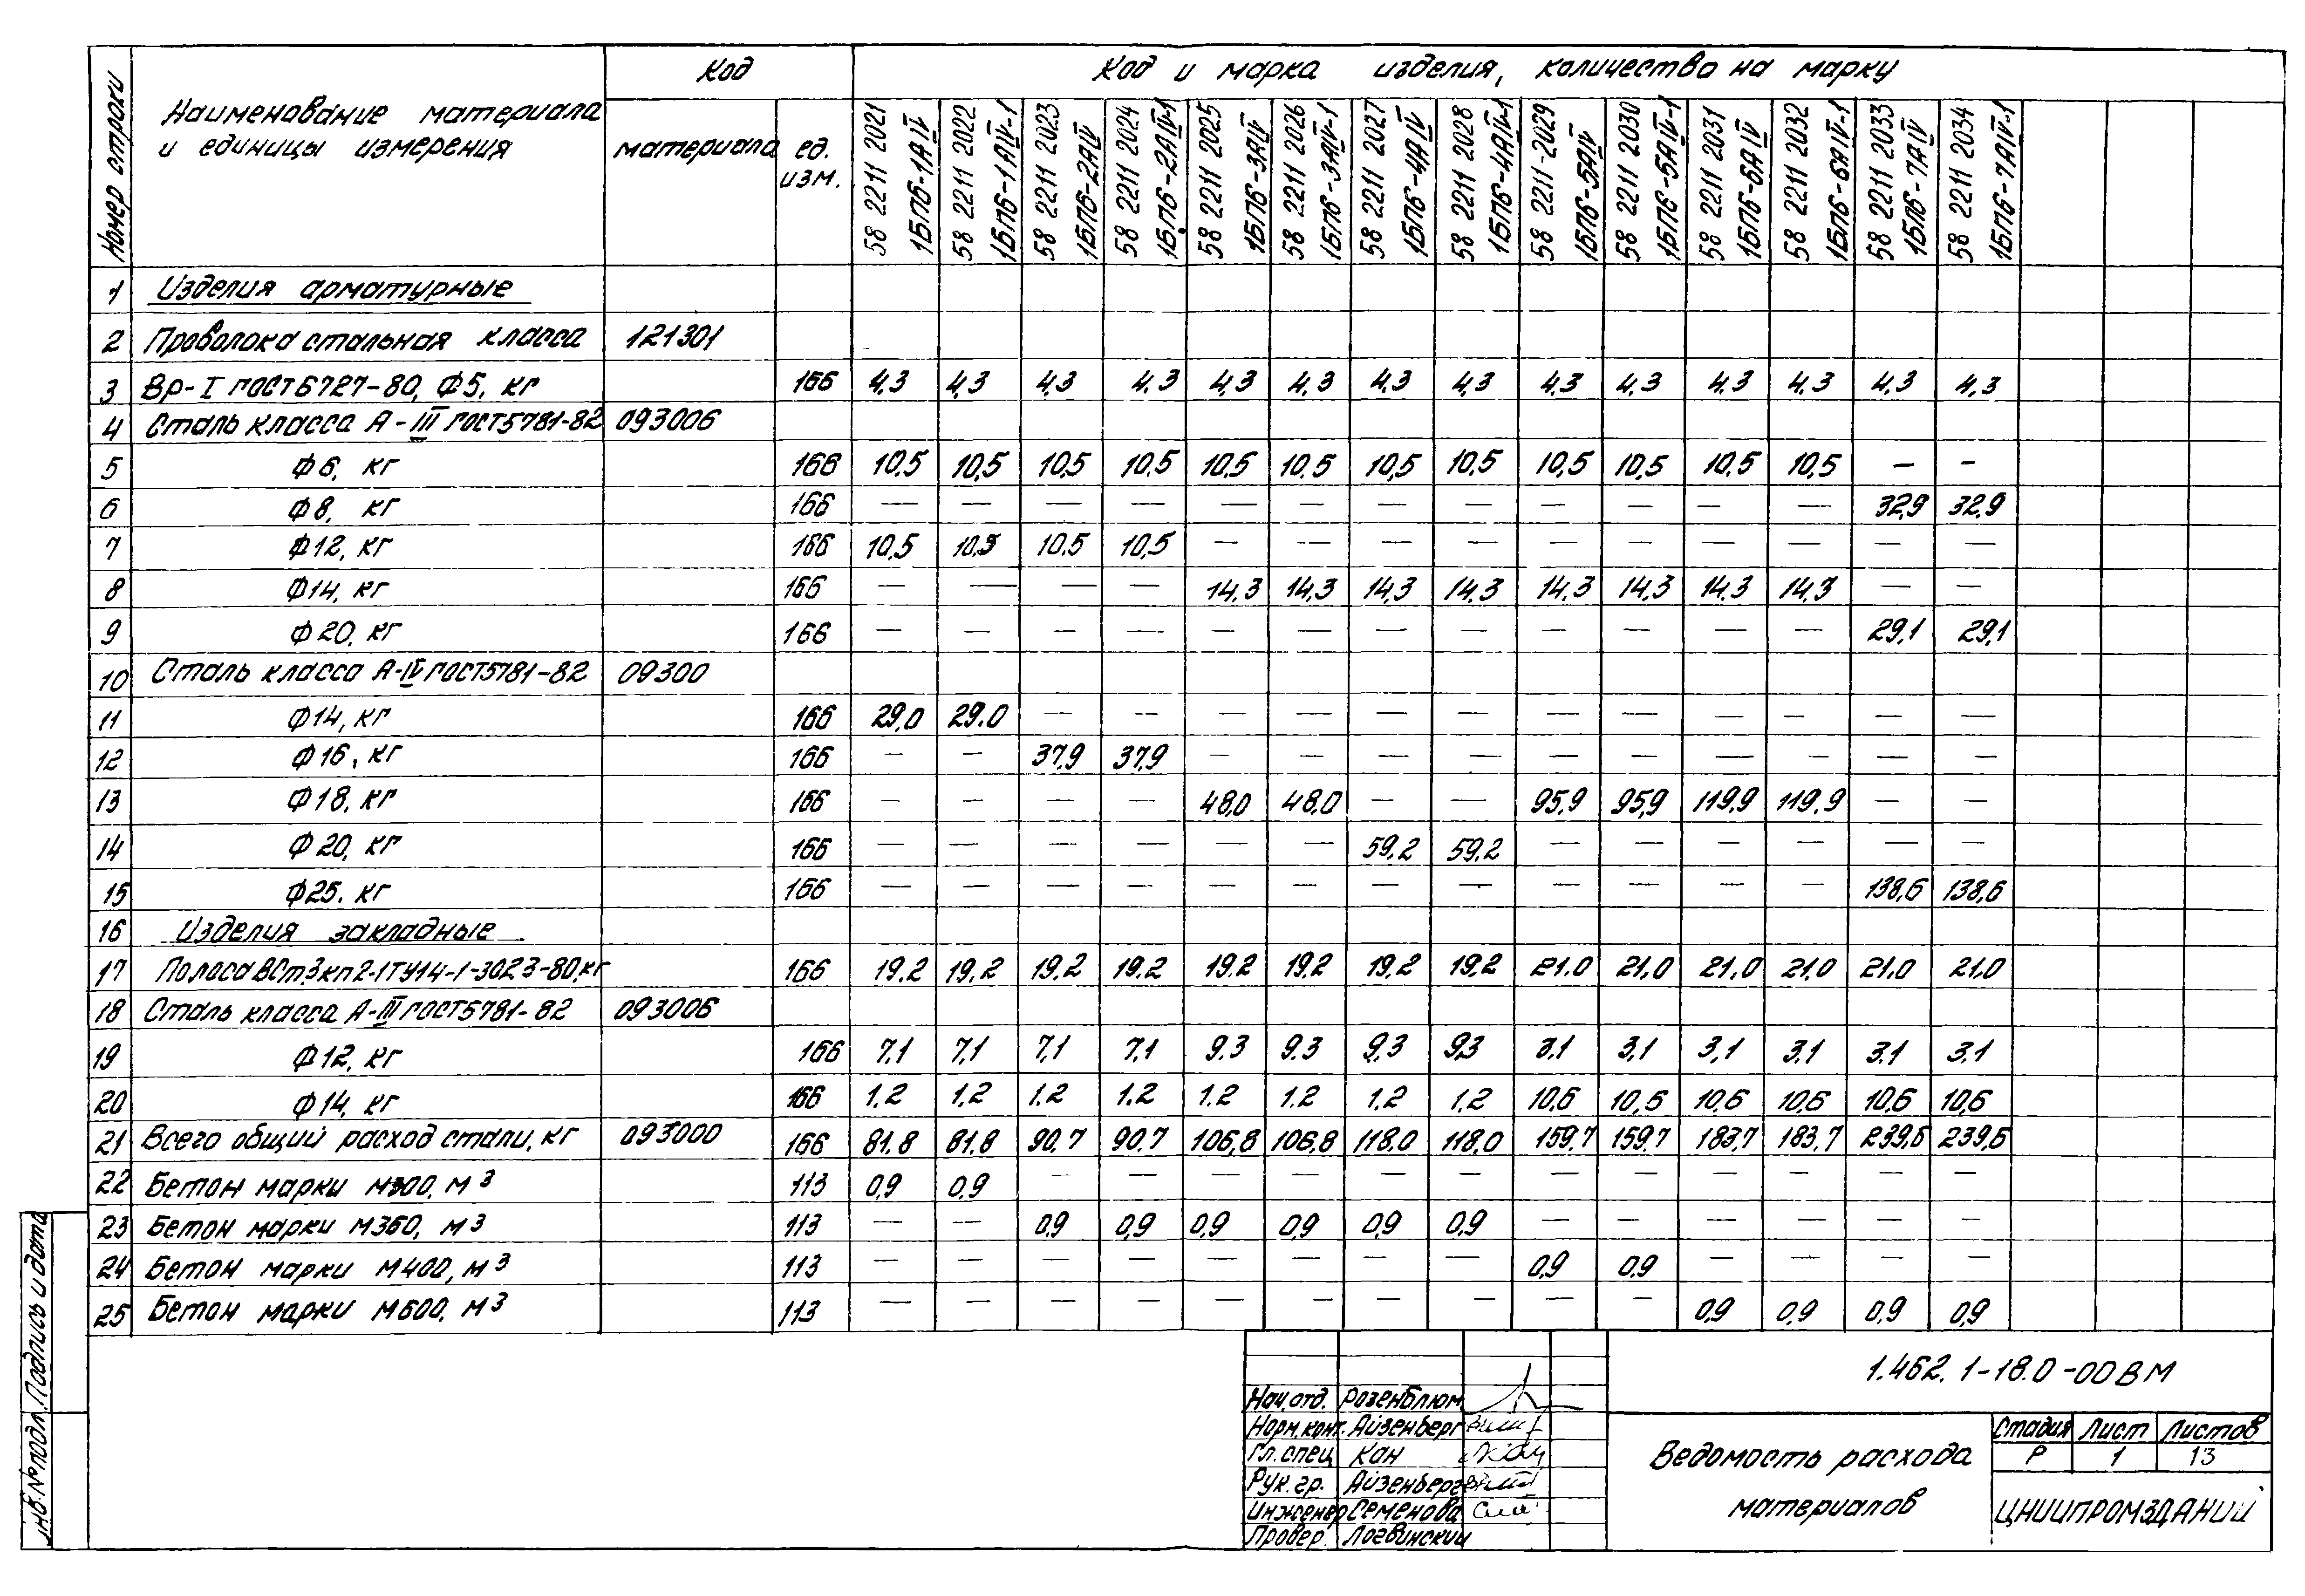 Номер строки
Наименование материала
и единицы измерения
Код
материала
ед.
изм.
Код и марка изделия, количество на марку
58 2211 2021
1БП6-1АIV
58 2211 2022
1БП6-1АIV-1
58 2211 2023
1БП6-2АIV
58 2211 2024
1БП6-2АIV-1
58 2211 2025
1БП6-3АIV
58 2211 2026
1БП6-3АIV-1
58 2211 2027
1БП6-4АIV
58 2211 2028
1БП6-4АIV-1
58 2211-2029
1БП6-5АIV
58 2211 2030
1БП6-5АIV-1
58 2211 2031
1БП6-6АIV
58 2211 2032
1БП6-6АIV-1
58 2211 2033
1БП6-7АIV
58 2211 2034
1БП6-7АIV-1
1 Изделия арматурные
2 Проволока стальная класса 121301
3 Вр-I ГОСТ 6727-80, Ф5, кг 166 4,3 4,3 4,3 4,3 4,3 4,3 4,3 4,3 4,3 4,3 4,3 4,3 4,3 4,3
4 Сталь класса А-III ГОСТ5781-82 093006
5 Ф6, кг 166 10,5 10,5 10,5 10,5 10,5 10,5 10,5 10,5 10,5 10,5 10,5 10,5 — —
6 Ф8, кг 166 — — — — — — — — — — — — 32,9 32,9
7 Ф12, кг 166 10,5 10,5 10,5 10,5 — — — — — — — — — —
8 Ф14, кг 166 — — — — 14,3 14,3 14,3 14,3 14,3 14,3 14,3 14,3 — —
9 Ф20, кг 166 — — — — — — — — — — — — 29,1 29,1
10 Сталь класса А-IV ГОСТ5781-82 09300
11 Ф14, кг 166 29,0 29.0 — — — — — — — — — — — —
12 Ф16, кг 166 — — 37,9 37,9 — — — — — — — — — —
13 Ф18, кг 166 — — — — 48,0 48,0 — — 95,9 95,9 119,9 119,9 — —
14 Ф20, кг 166 — — — — — — 59,2 59,2 — — — — — —
15 Ф25. кг 166 — — — — — — — — — — — — 138,6 138,6
16 Изделия закладные
17 Полоса ВСт3кп2-1ТУ14-1-3023-80,кг 166 19.2 19,2 19,2 19.2 19.2 19,2 19,2 19,2 21.0 21,0 21,0 21,0 21.0 21.0
18 Сталь класса А-III ГОСТ5781-82 093006
19 Ф12, кг 166 7,1 7,1 7,1 7,1 9.3 9.3 9,3 9,3 3.1 3,1 3,1 3.1 3.1 3.1
20 Ф14, кг 166 1.2 1,2 1.2 1.2 1.2 1.2 1.2 1.2 10,6 10,6 10,6 10,6 10,6 10,6
21 Всего общий расход стали, кг 093000 166 81.8 81.8 90.7 90.7 106,8 106,8 118.0 118,0 159,7 159.7 183,7 183,7 239,6 239,6
22 Бетон марки М300, м3 113 0,9 0,9 — — — — — — — — — — — —
23 Бетон марки М350, м3 113 — — 0,9 0,9 0,9 0,9 0,9 0,9 — — — — — —
24 Бетон марки М400, м3 113 — — — — — — — — 0,9 0.9 — — — —
25 Бетон марки М500, м3 113 — — — — — — — — — — 0,9 0,9 0,9 0,9
Инв.№подл. Подпись и дата
Нач.отд. Розенблюм
Норм.конт. Айзенберг
Гл.спец Кан
Рук.гр. Айзенберг
Инженер Семенова
Провер. Логвинский
1.462.1-18.0-00ВМ
Ведомость расхода
материалов
Стадия Лист Листов
Р 1 13
ЦНИИПРОМЗДАНИЙ